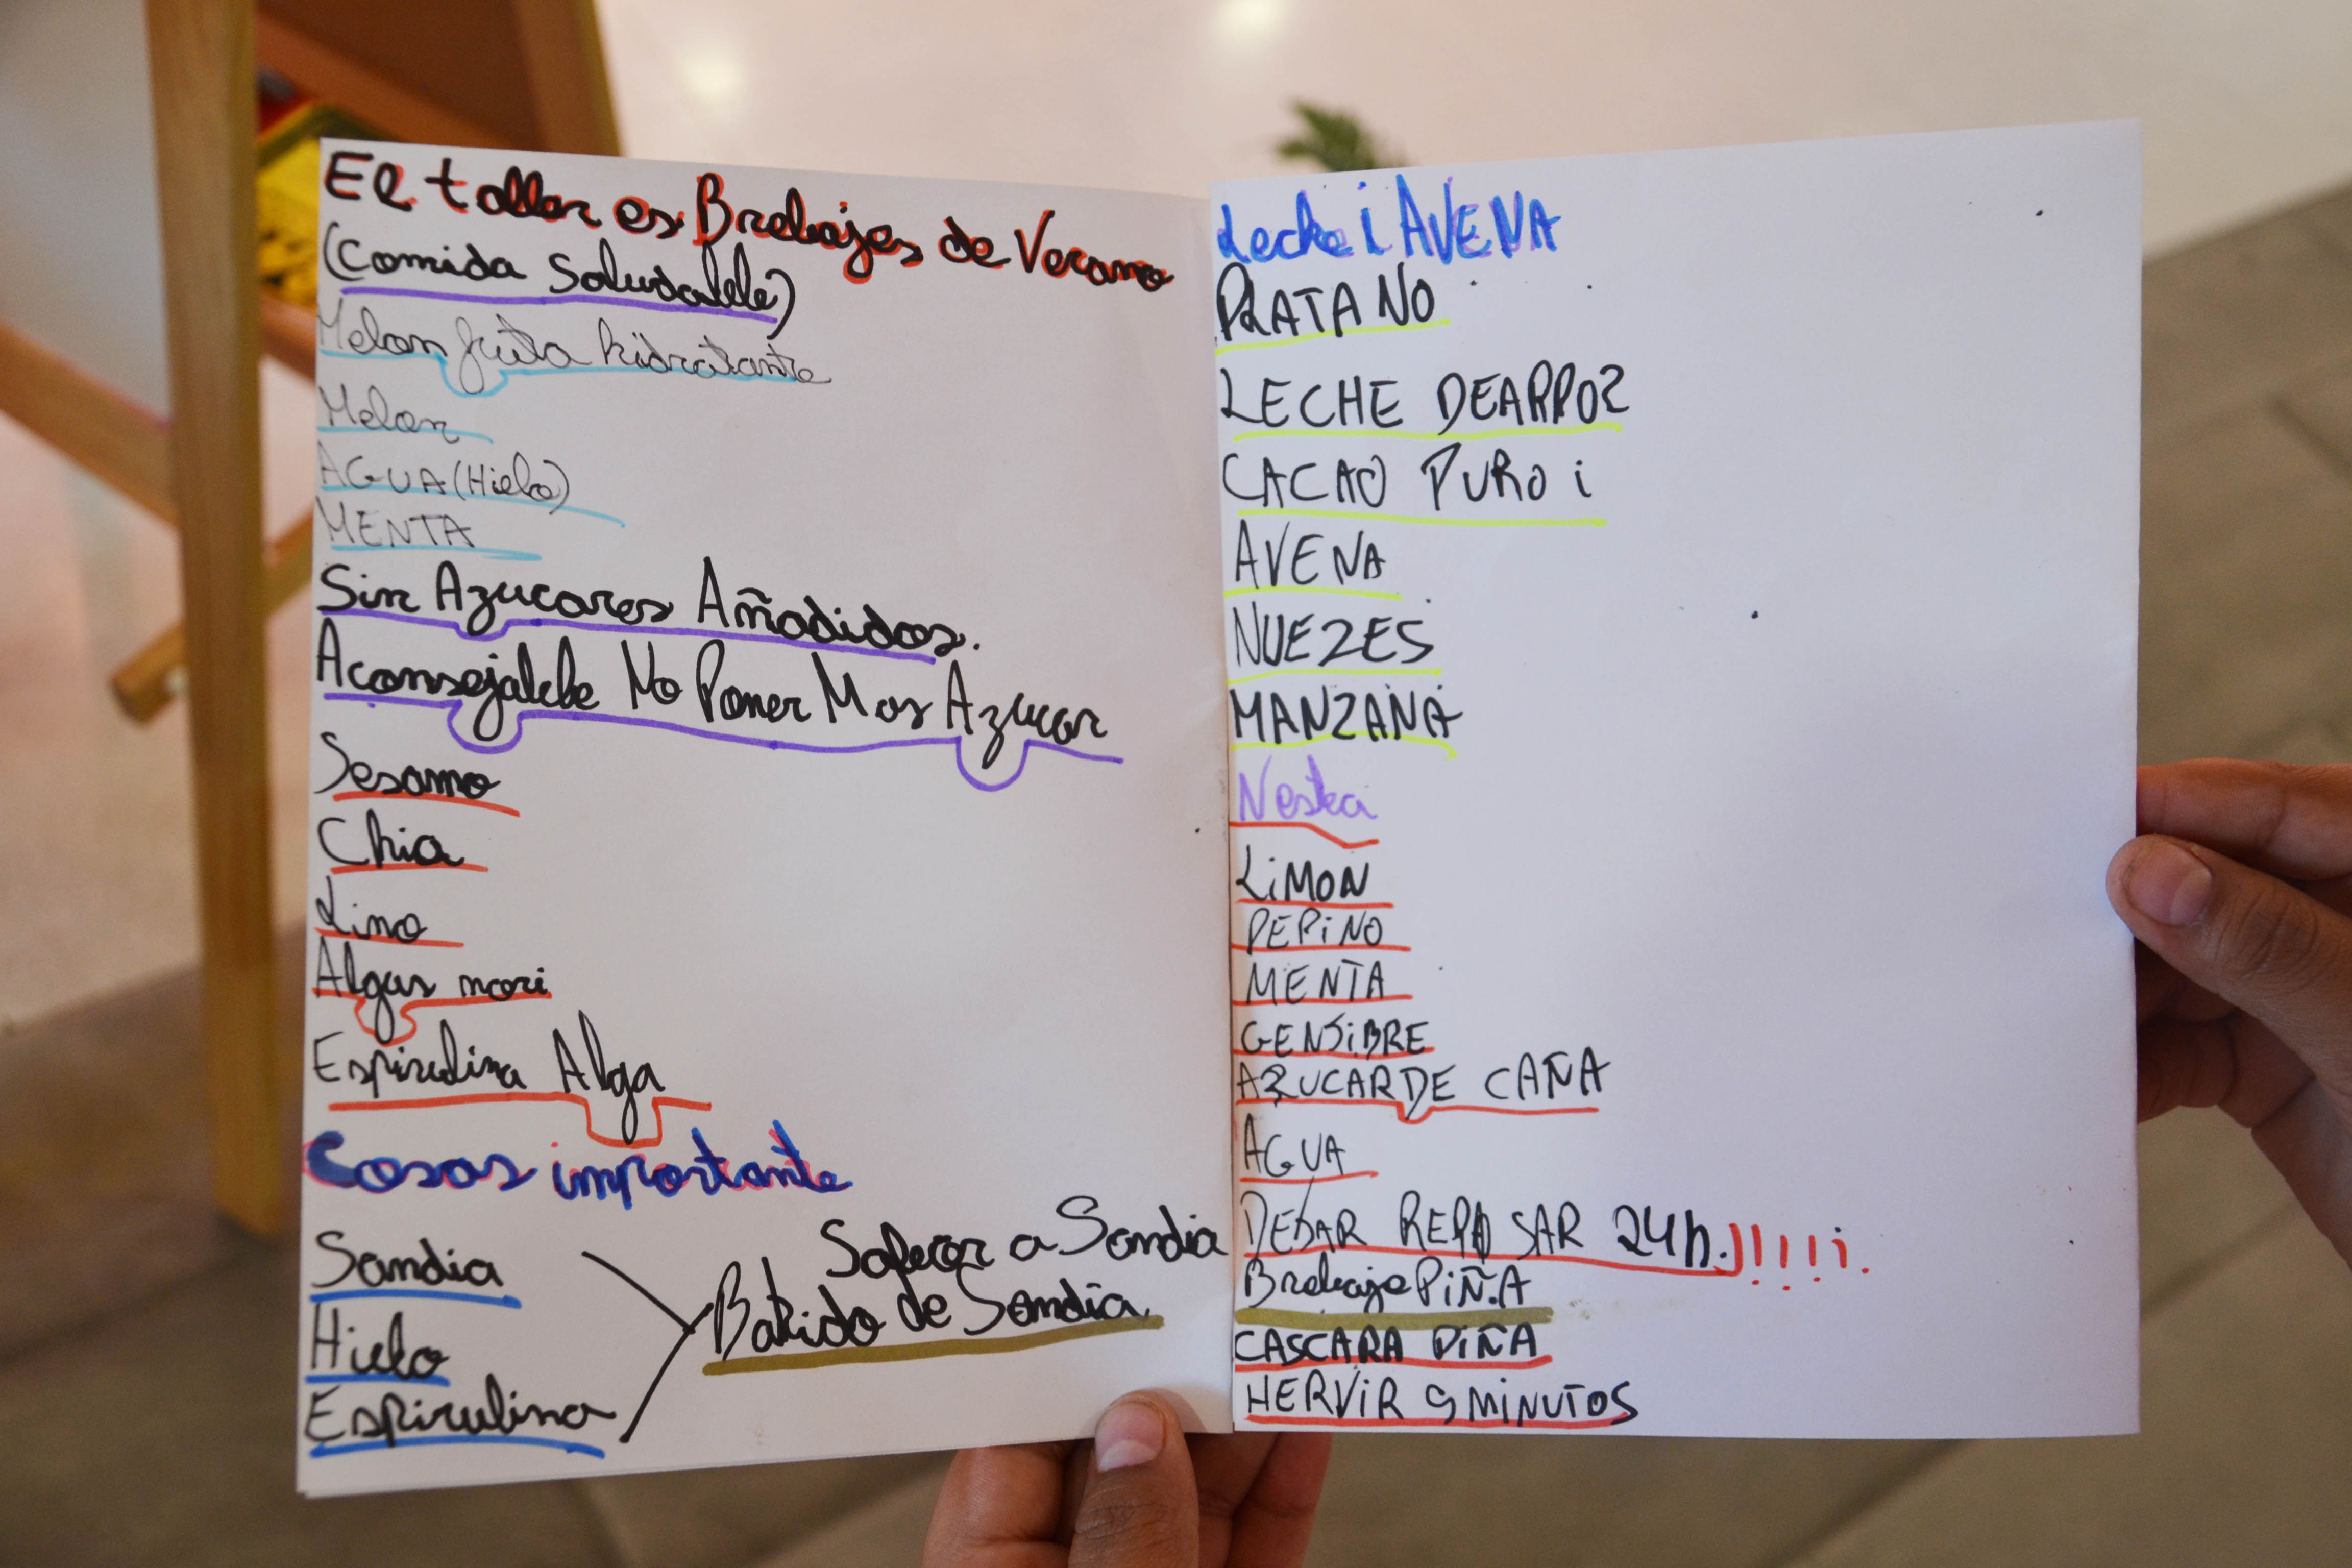 El taller es Brebajes de Verano
(Comida Saludable)
Melon fruta hidratante
Melon
AGUA (Hielo)
MENTA
Sin Azucares Añadidos.
Aconsejable No Poner Mas Azucar
Sesamo
Chia
Lino
Algas nori
Espirulina Alga
Cosas importante
Sandia
Hielo
Espirulina
Saber a Sandia
Batido de Sandia
Leche i AVENA
PLATANO
LECHE DE ARROZ
CACAO PURO i
AVENA
NUEZES
MANZANA
LiMON
PEPiNO
MENTA
GENSiBRE
AZUCAR DE CAÑA
AGUA
DEJAR REPOSAR 24h.!!!!i.
Brebaje PiÑA
CASCARA PiÑA
HERViR 9 MiNUTOS